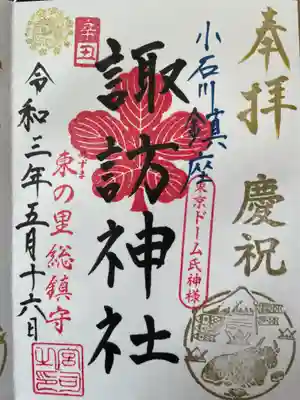 奉拝
慶祝
小石川鎮座
東京ドーム氏神様
諏訪神社
辛丑
東の里総鎮守
あずま
令和三年五月十六日